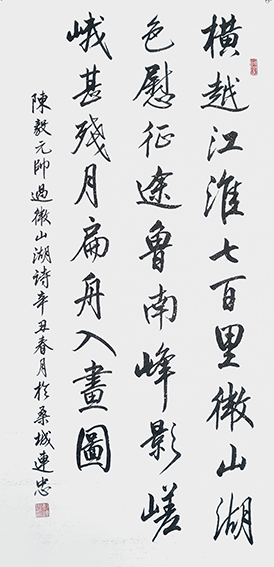 橫越江淮七百里微山湖
色慰征途魯南峰影嵯
峨甚殘月扁舟入畫圖
陳毅元帥過微山湖詩辛丑春月於桑城連忠